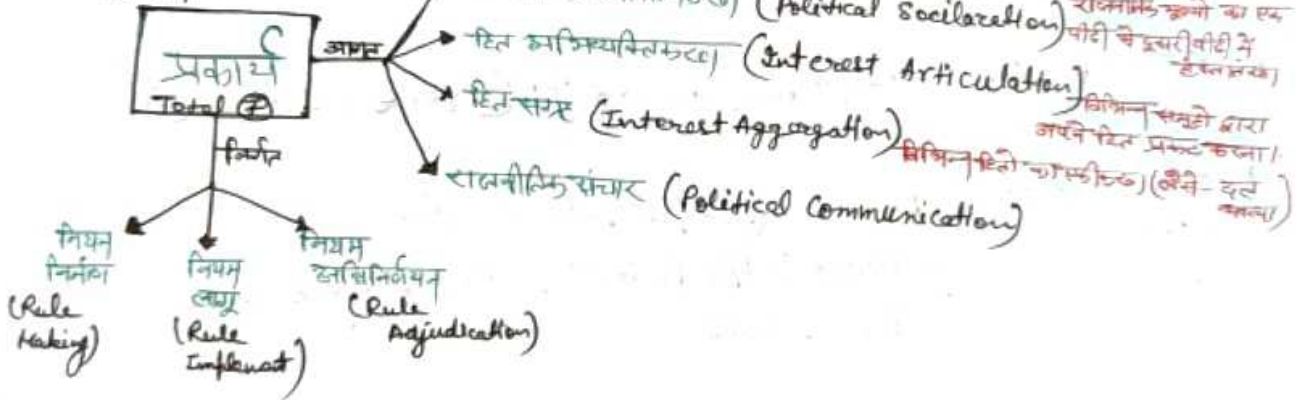 (Political Socilaration)
पीढी से दूसरी पीढी में
हस्तांतरण।
प्रकार्य
Total ⑦
आगत
हित अभिव्यक्तिकरण (Interest Articulation)
विभिन्न समूहो द्वारा
अपने हित प्रकट करना।
हित संग्रह (Interest Aggargation)
विभिन्न हितो का एकीकरण (जैसे - दल
राजनीतिक संचार (Political Communication)
निर्गत
नियम
निर्माण
(Rule
Making)
नियम
लागू
(Rule
Implemat)
नियम
अधिनिर्णयन
(Rule
Adjudication)